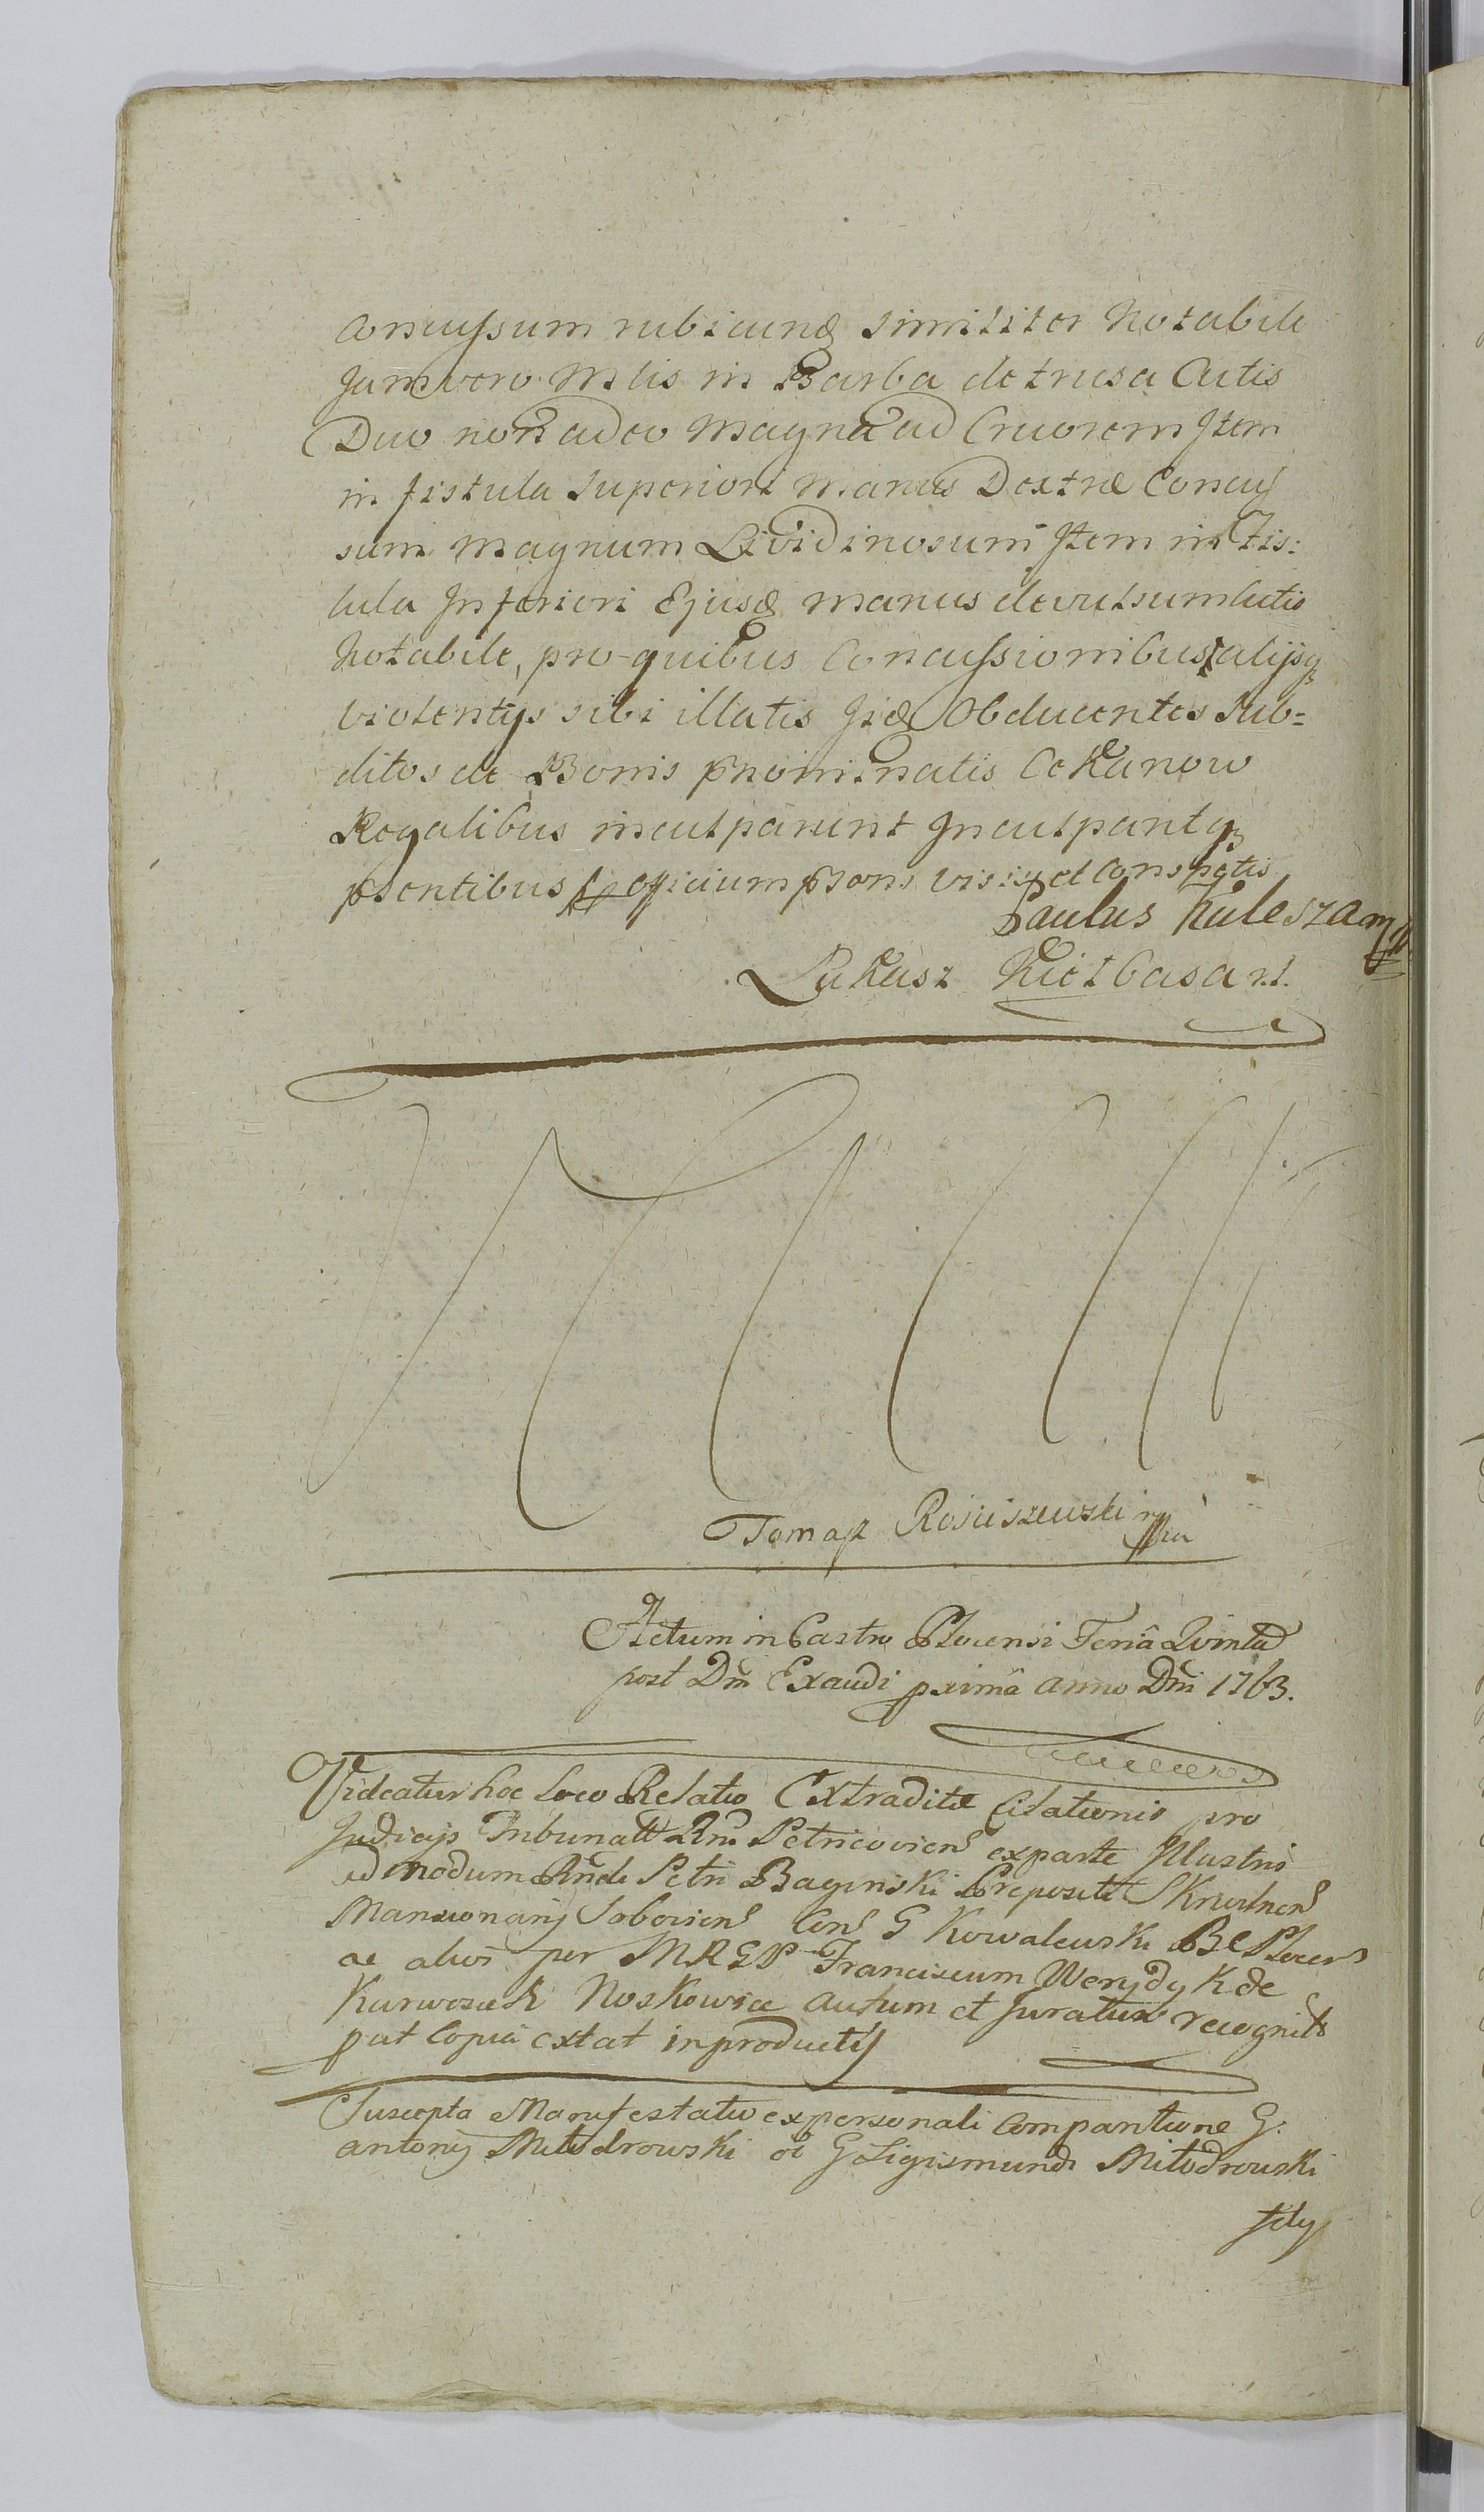 Concussum rubicund similiter Notabile
Jam vero Mlis in Barba detrusa Cutis
Duo non adeo Magna ad Cruorem Item
in fistula Superiori Manus Dextræ Concus
sum magnum Lividinosum Item in Fis:
tula Inferiori Ejusd manus devulsum Cutis
Notabile, pro quibus Concussionibus alijsq
violentijs sibi illatis Jid Obducentes Sub=
ditos de Bonis pnominatis Cekanow
Regalibus inculparunt Inculpantq
psentibus officium psens visis et conspetis
Paulus Kulesza mp
Lukasz Kietbasa
Tomasz Rosciszewski mppa
Actum in Castro Plocensi Feriâ Quintâ
post Dm Exaudi pximâ anno Dni 1763.
Videatur hoc loco Relatio Extraditæ Citationis pro
Judicijs Tribunalt Rni Petricovien exparte Illustris
admodum Rndi Petri Baginski Prepositi Skrwilnen
Mansionarij Sobovien Con G Kowalewski BC Plocen
ac alios per MRGP Franciscum Werydy K de
Kurwoziek Noskowice autum et Juratum recognit
put Copia extat in productis
Suscepta Manifestatio expersonali Comparitione G.
antonij Milodrowski oi G Sigismundi Milodrowski
filij